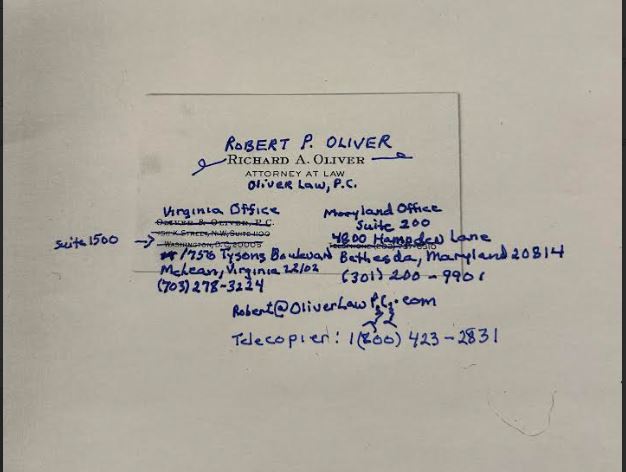 ROBERT P. OLIVER
RICHARD A. OLIVER
ATTORNEY AT LAW
Oliver Law, P.C.
Virginia Office
Maryland Office
OLIVER & OLIVER, P.C.
Suite 200
K STREET, N.W., SUITE 1100
Suite 1500
4800 Hampden Lane
WASHINGTON, D.C. 20005
1750 Tysons Boulevard
Bethesda, Maryland 20814
McLean, Virginia 22102
(301) 200-9901
(703) 278-3224
Robert@OliverLawPC.com
Telecopier: 1(800) 423-2831